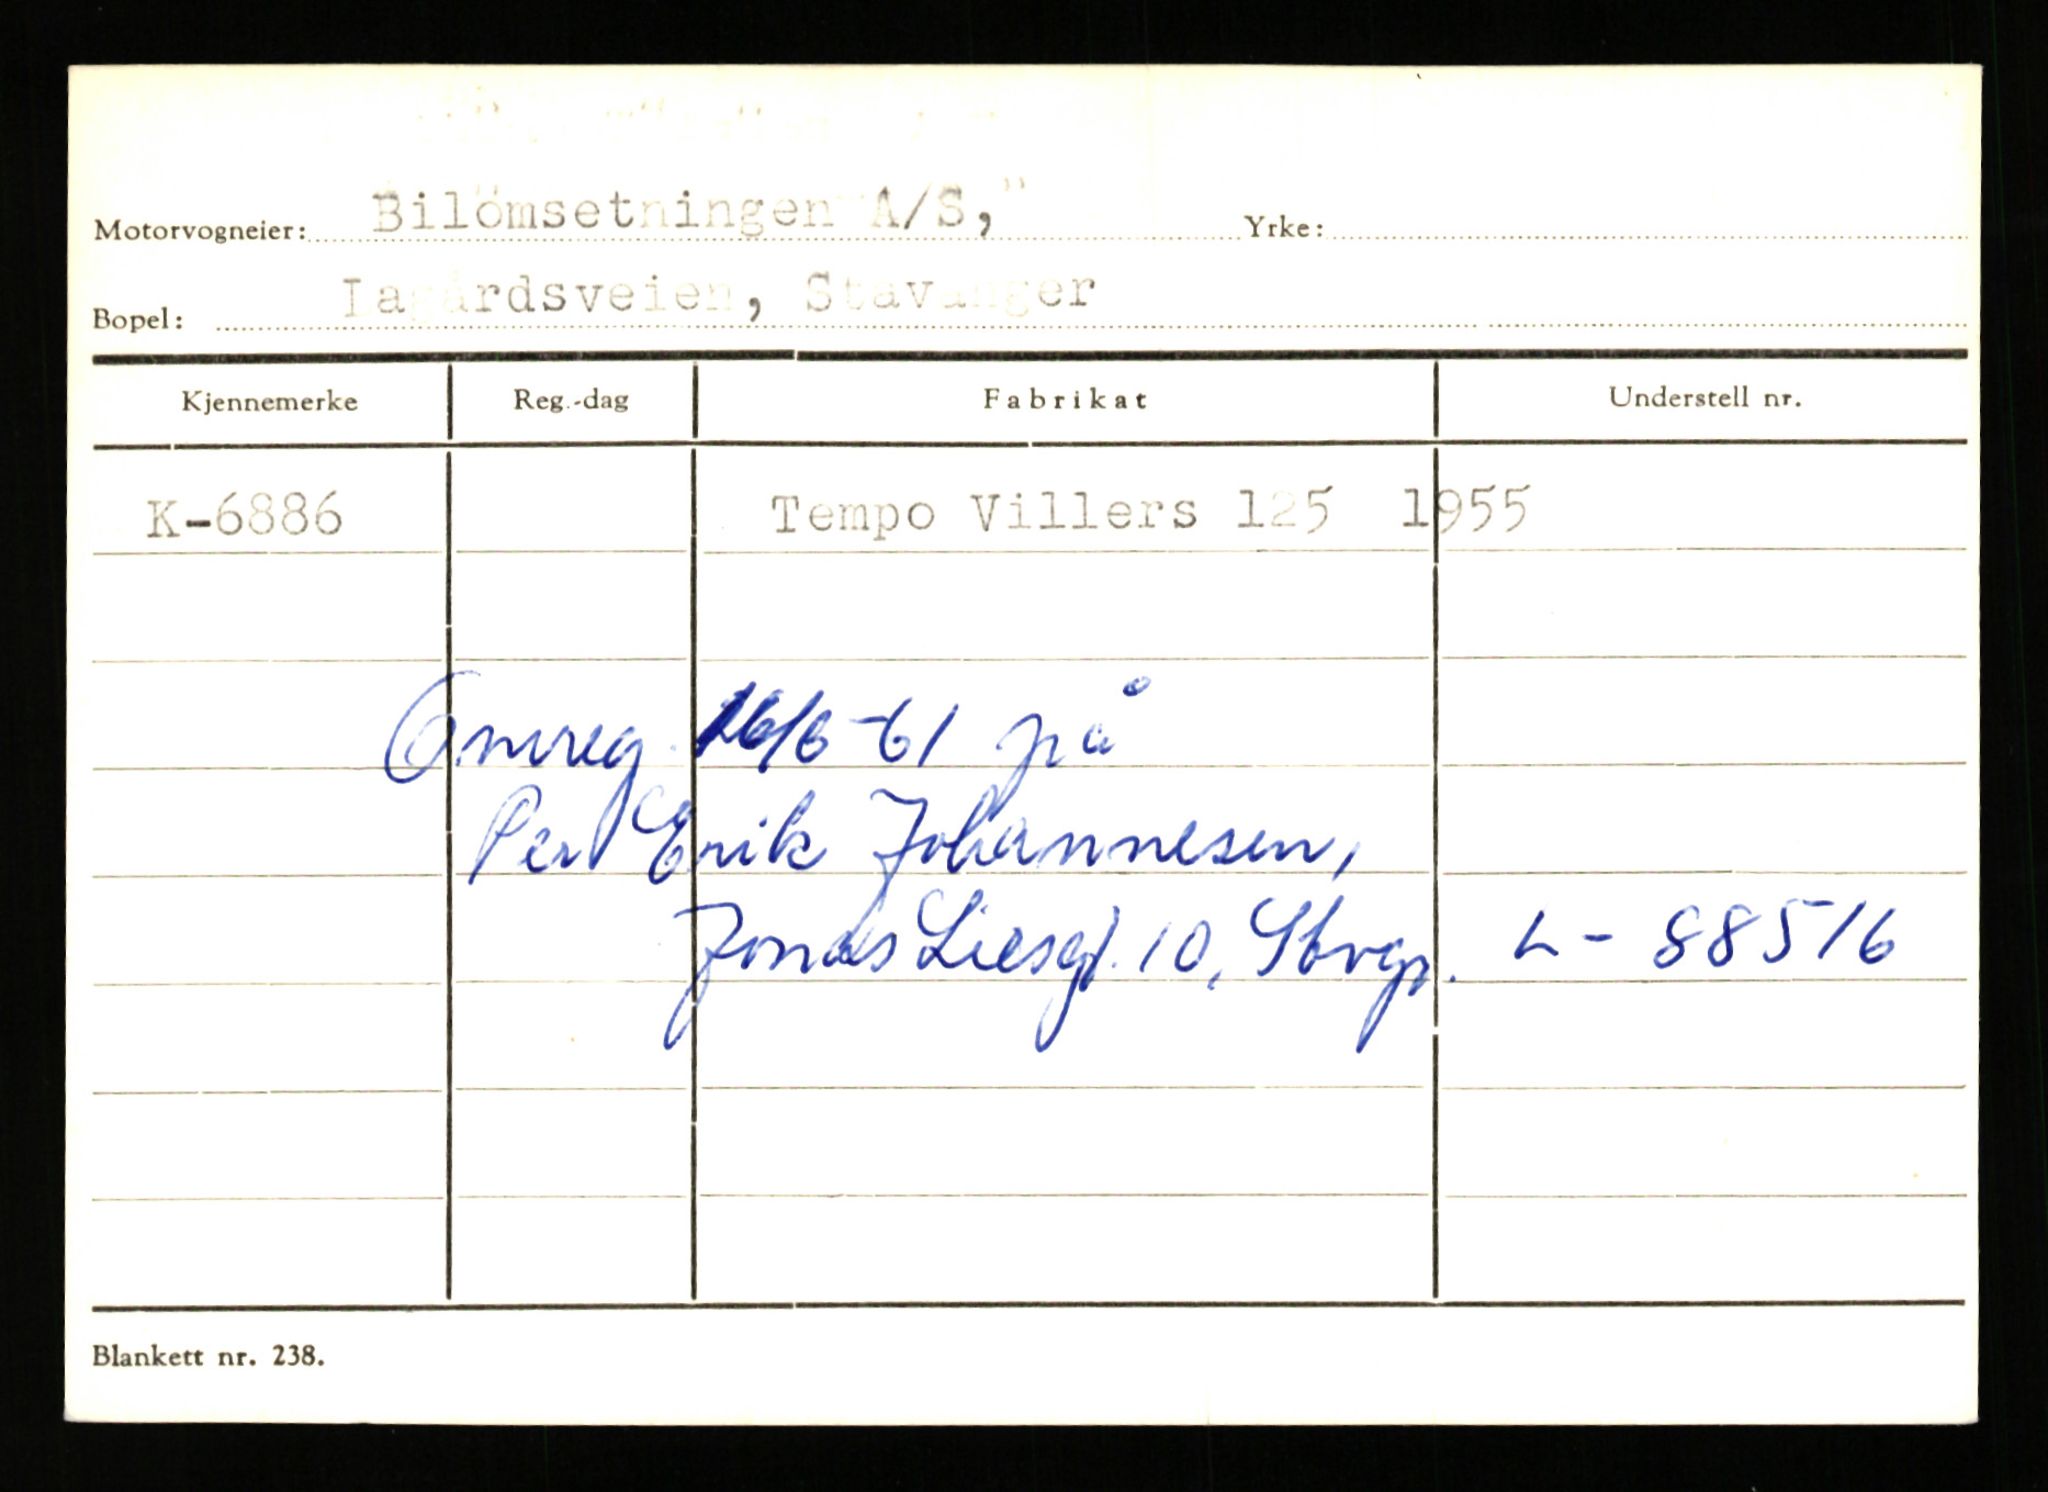 Motorvogneier: Bilomsetningen A/S, Yrke:
Bopel: Lagårdsveien, Stavanger
Kjennemerke Reg.-dag Fabrikat Understell nr.
K-6886 Tempo Villers 125 1955
Omreg. 16/6-61 på
Per Erik Johannesen,
Jonas Liesgt. 10, Stvgr. L-88516
Blankett nr. 238.